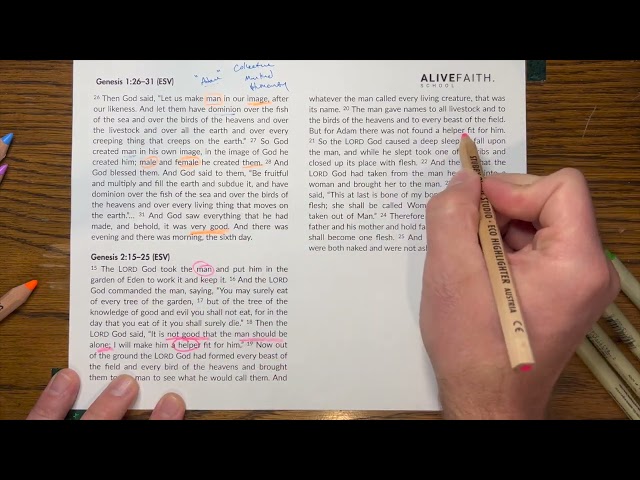 Genesis 1:26–31 (ESV)
"Adam"
Collective
Mankind
Humanity
26 Then God said, "Let us make man in our image, after
our likeness. And let them have dominion over the fish
of the sea and over the birds of the heavens and over
the livestock and over all the earth and over every
creeping thing that creeps on the earth." 27 So God
created man in his own image, in the image of God he
created him; male and female he created them. 28 And
God blessed them. And God said to them, "Be fruitful
and multiply and fill the earth and subdue it, and have
dominion over the fish of the sea and over the birds of
the heavens and over every living thing that moves on
the earth."... 31 And God saw everything that he had
made, and behold, it was very good. And there was
evening and there was morning, the sixth day.
Genesis 2:15–25 (ESV)
15 The LORD God took the man and put him in the
garden of Eden to work it and keep it. 16 And the LORD
God commanded the man, saying, "You may surely eat
of every tree of the garden, 17 but of the tree of the
knowledge of good and evil you shall not eat, for in the
day that you eat of it you shall surely die." 18 Then the
LORD God said, "It is not good that the man should be
alone; I will make him a helper fit for him." 19 Now out
of the ground the LORD God had formed every beast of
the field and every bird of the heavens and brought
them to man to see what he would call them. And
ALIVEFAITH.
SCHOOL
whatever the man called every living creature, that was
its name. 20 The man gave names to all livestock and to
the birds of the heavens and to every beast of the field.
But for Adam there was not found a helper fit for him.
21 So the LORD God caused a deep sleep fall upon
the man, and while he slept took one of ribs and
closed up its place with flesh. 22 And the that the
LORD God had taken from the man he into a
woman and brought her to the man.
said, "This at last is bone of my bo
flesh; she shall be called Wom
taken out of Man." 24 Therefore
father and his mother and hold fa
shall become one flesh. 25 And
were both naked and were not as
STUDIO - ECO HIGHLIGHTER AUSTRIA CE